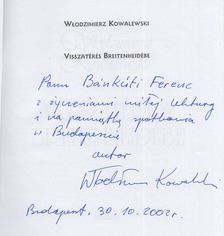 WŁODZIMIERZ KOWALEWSKI
VISSZATÉRÉS BREITENHEIDÉBE
Panu Bánkúti Ferenc
z życzeniami miłej lektury
i na pamiątkę spotkania
w Budapeszcie
autor
Włodzim Kowalski
Budapest, 30.10.2002 r.